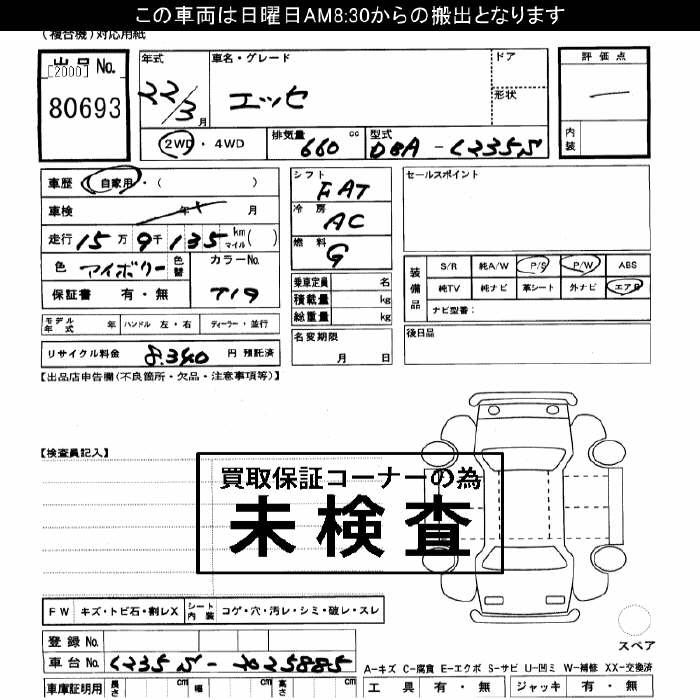 この車両は日曜日AM8:30からの搬出となります
(複合機)対応用紙
出品No.
[2000]
80693
年式
22/3月
車名・グレード
エッセ
ドア
形状
2WD・4WD
排気量 660 cc
型式 DBA-L235S
評価点
―
内装
車歴 自家用・( )
車検 年 月
走行 15万9千135 km マイル( )
色 アイボリー 色替
カラーNo.
719
保証書 有・無
シフト FAT
冷房 AC
燃料 G
乗車定員 名
積載量 kg
総重量 kg
セールスポイント
装備品
S/R 純A/W P/S P/W ABS
純TV 純ナビ 革シート 外ナビ エアB
ナビ型番:
モデル年式 年 ハンドル 左・右 ディーラー・並行
名変期限
月 日
後日品
リサイクル料金 8,340 円 預託済
【出品店申告欄(不良箇所・欠品・注意事項等)】
【検査員記入】
買取保証コーナーの為
未検査
FW キズ・トビ石・割レX シート内装 コゲ・穴・汚レ・シミ・破レ・スレ
スペア
登録No.
車台No. L235S-2025885
A-キズ C-腐食 E-エクボ S-サビ U-凹ミ W-補修 XX-交換済
車庫証明用 長さ cm 幅 cm 高さ cm
工具 有・無 ジャッキ 有・無